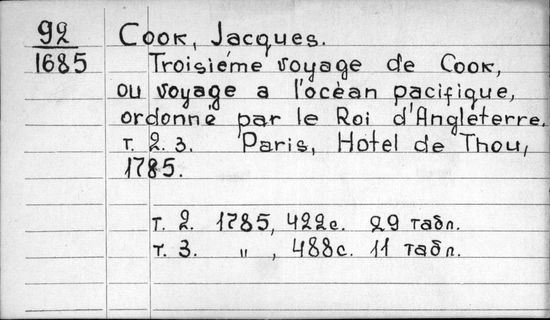 92
1685
Cook, Jacques.
Troisiéme voyage de Cook,
ou voyage a l'océan pacifique,
ordonné par le Roi d'Angleterre.
т. 2. 3. Paris, Hotel de Thou,
1785.
т. 2. 1785, 422с. 29 табл.
т. 3. " , 488с. 11 табл.